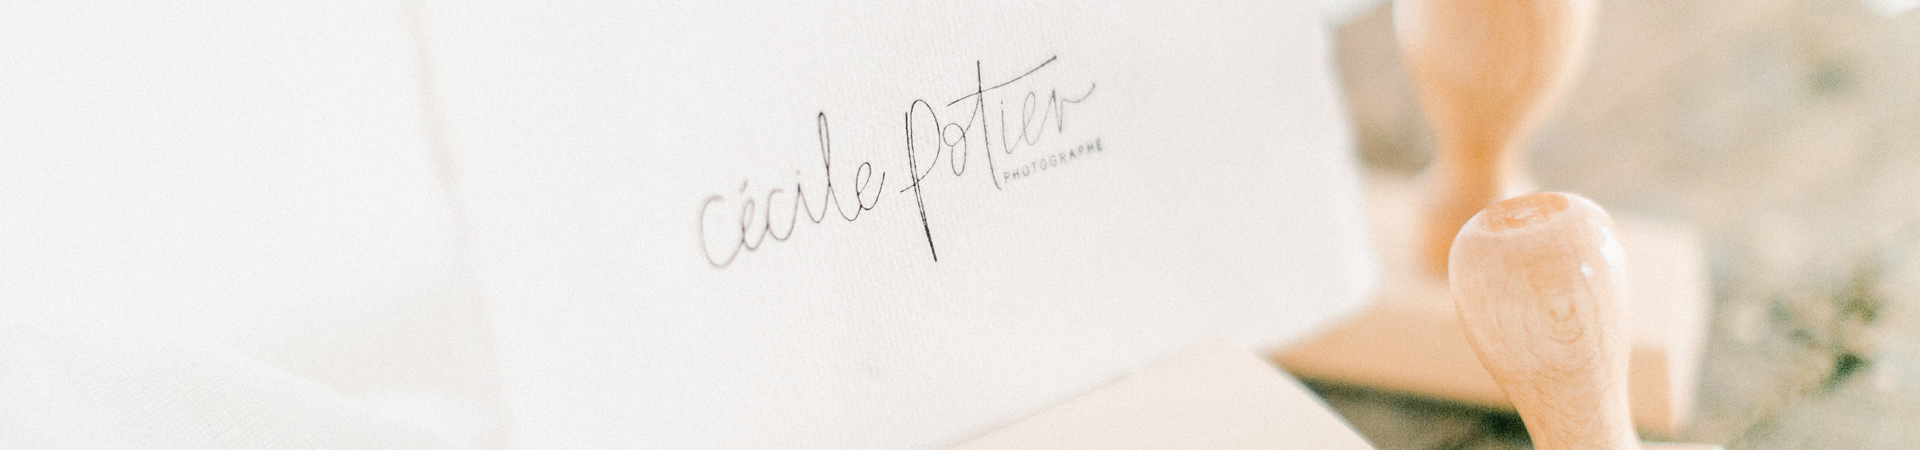 Cécile Potier
PHOTOGRAPHE